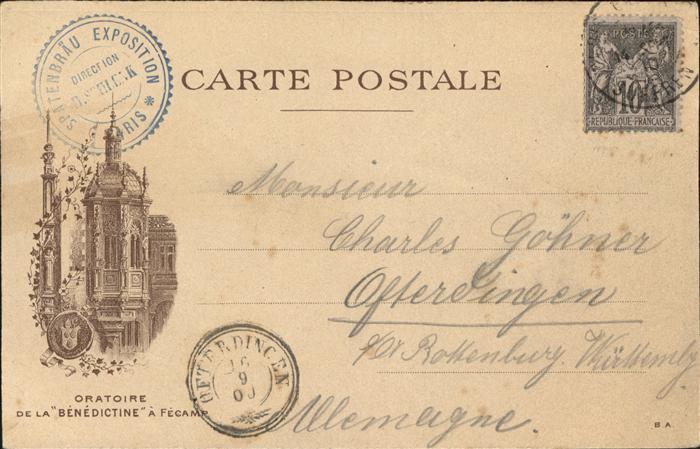 SPATENBRÄU EXPOSITION
DIRECTION
PARIS
CARTE POSTALE
POSTES
10
REPUBLIQUE FRANÇAISE
Monsieur
Charles Göhner
Ofterdingen
O/A Rottenburg. Württembg.
Allemagne.
OFTERDINGEN
9
00
ORATOIRE
DE LA "BÉNÉDICTINE" À FÉCAMP
B A